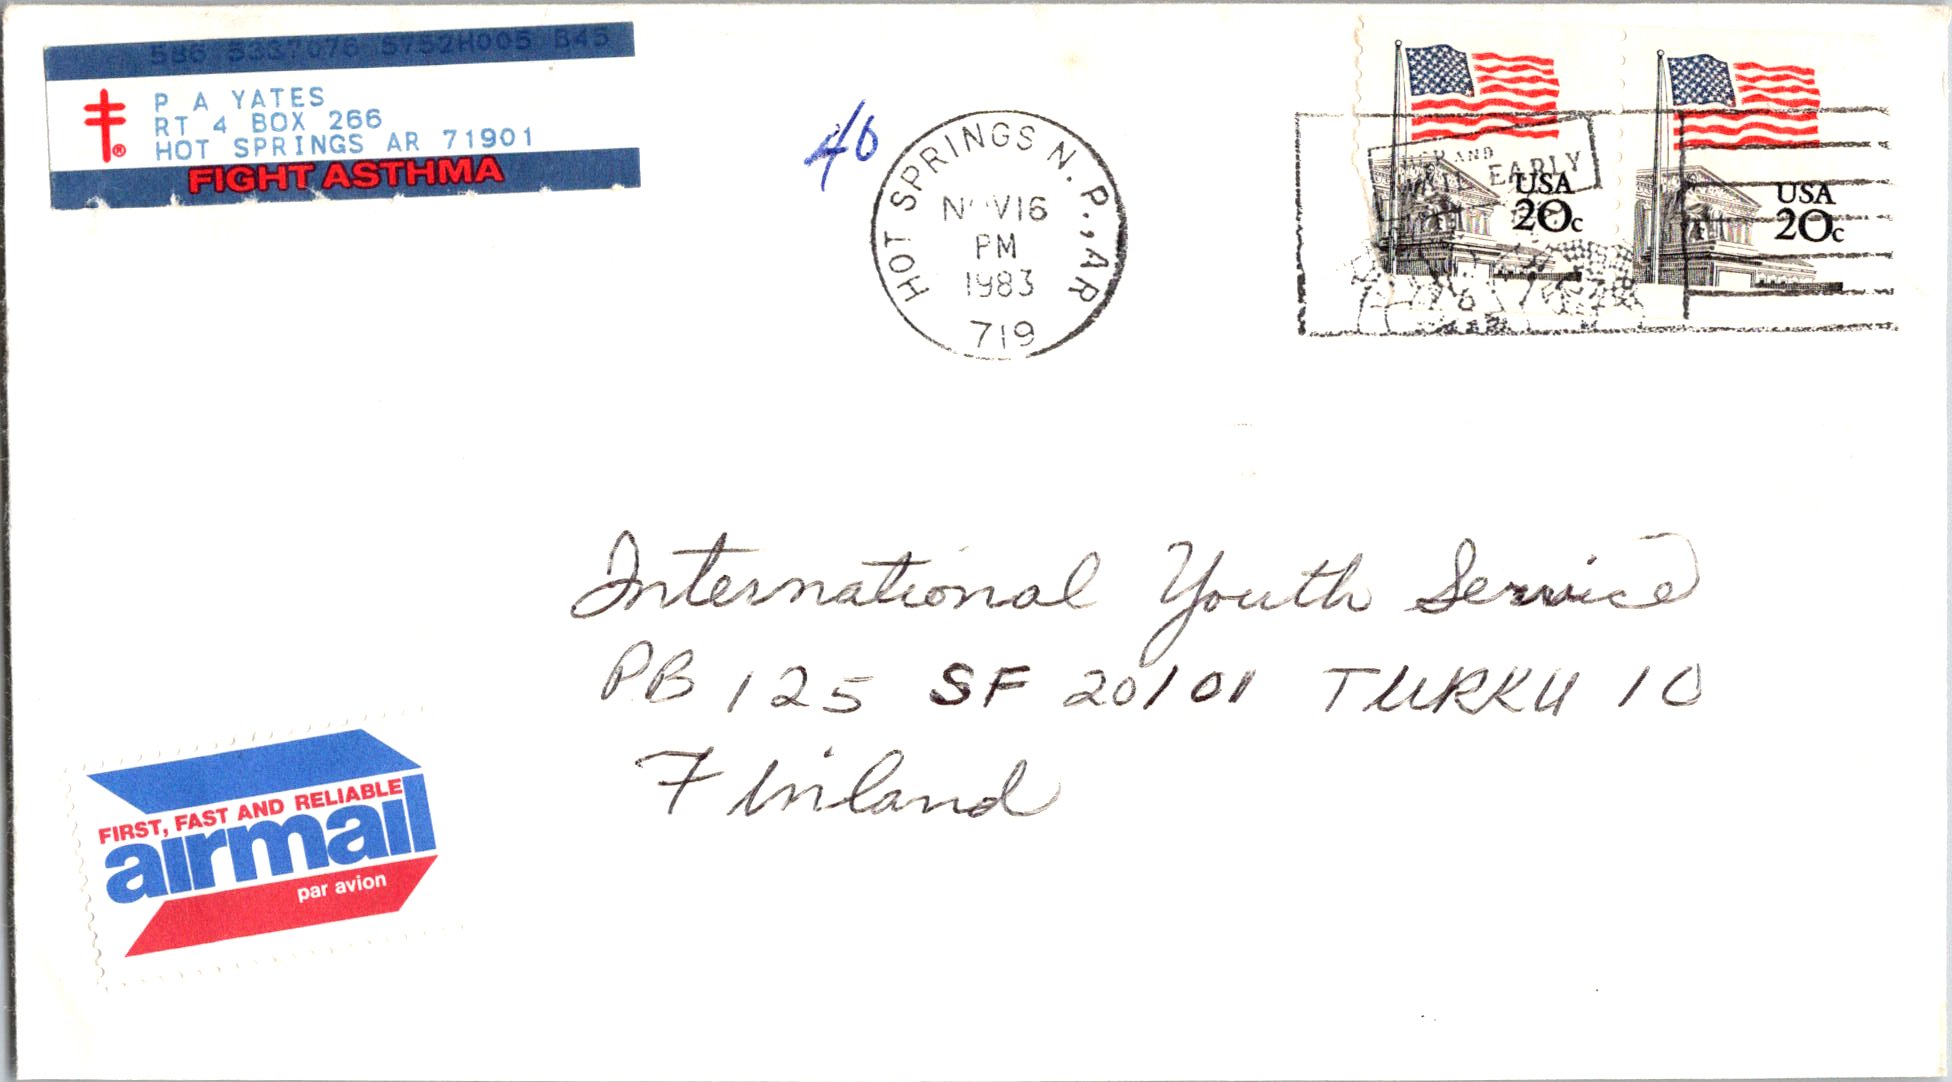 586 5337076 5752H005 B45
P A YATES
RT 4 BOX 266
HOT SPRINGS AR 71901
FIGHT ASTHMA
40
HOT SPRINGS N.P., AR
NOV 16
PM
1983
719
AND
MAIL EARLY
USA
20c
USA
20c
International Youth Service
PB 125 SF 20101 TURKU 10
Finland
FIRST, FAST AND RELIABLE
airmail
par avion